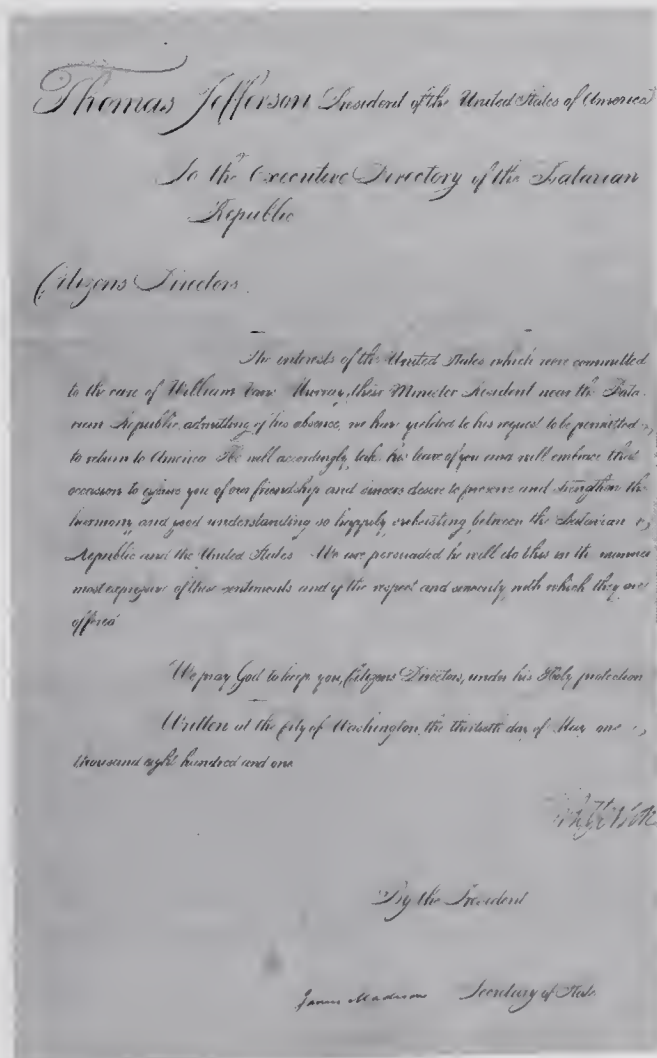 Thomas Jefferson President of the United States of America
To the Executive Directory of the Batavian
Republic
Citizens Directors.
The interests of the United States which were committed
to the care of William Vans Murray, their Minister Resident near the Bata-
vian Republic, admitting of his absence, we have yielded to his request to be permitted
to return to America. He will accordingly take his leave of you and will embrace that
occasion to assure you of our friendship and sincere desire to preserve and strengthen the
harmony and good understanding so happily subsisting between the Batavian
Republic and the United States. We are persuaded he will do this in the manner
most expressive of these sentiments and of the respect and sincerity with which they are
offered
We pray God to keep you, Citizens Directors, under his Holy protection
Written at the City of Washington, the thirtieth day of May one
thousand eight hundred and one
By the President
James Madison Secretary of State